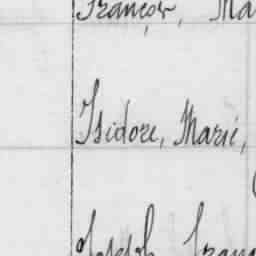 François, Ma
Isidore, Marie,
Joseph, Franç